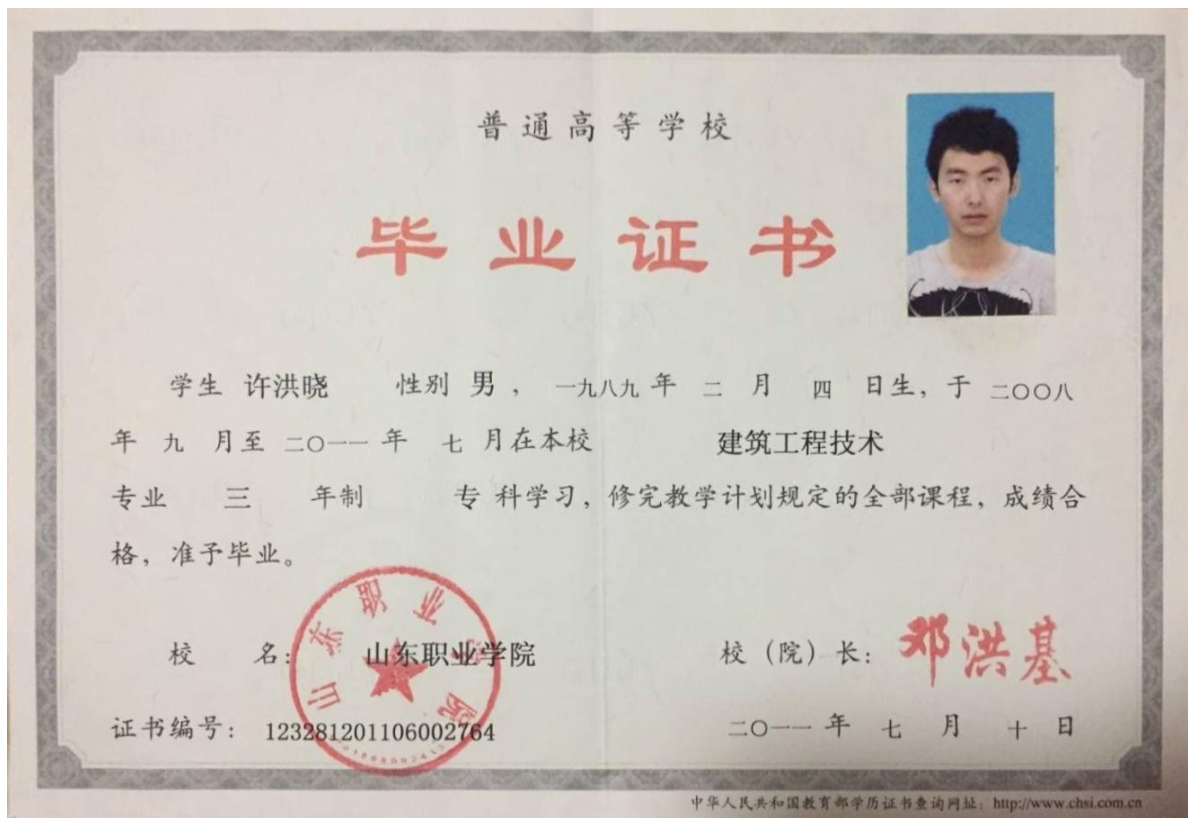 普通高等学校
毕业证书
学生 许洪晓 性别 男 ， 一九八九 年 二 月 四 日生，于 二〇〇八
年 九 月至 二〇一一 年 七 月在本校 建筑工程技术
专业 三 年制 专 科学习，修完教学计划规定的全部课程，成绩合
格，准予毕业。
山东职业学院
校 名： 山东职业学院 校（院）长： 邓洪基
证书编号： 123281201106002764 二〇一一 年 七 月 十 日
中华人民共和国教育部学历证书查询网址：http://www.chsi.com.cn